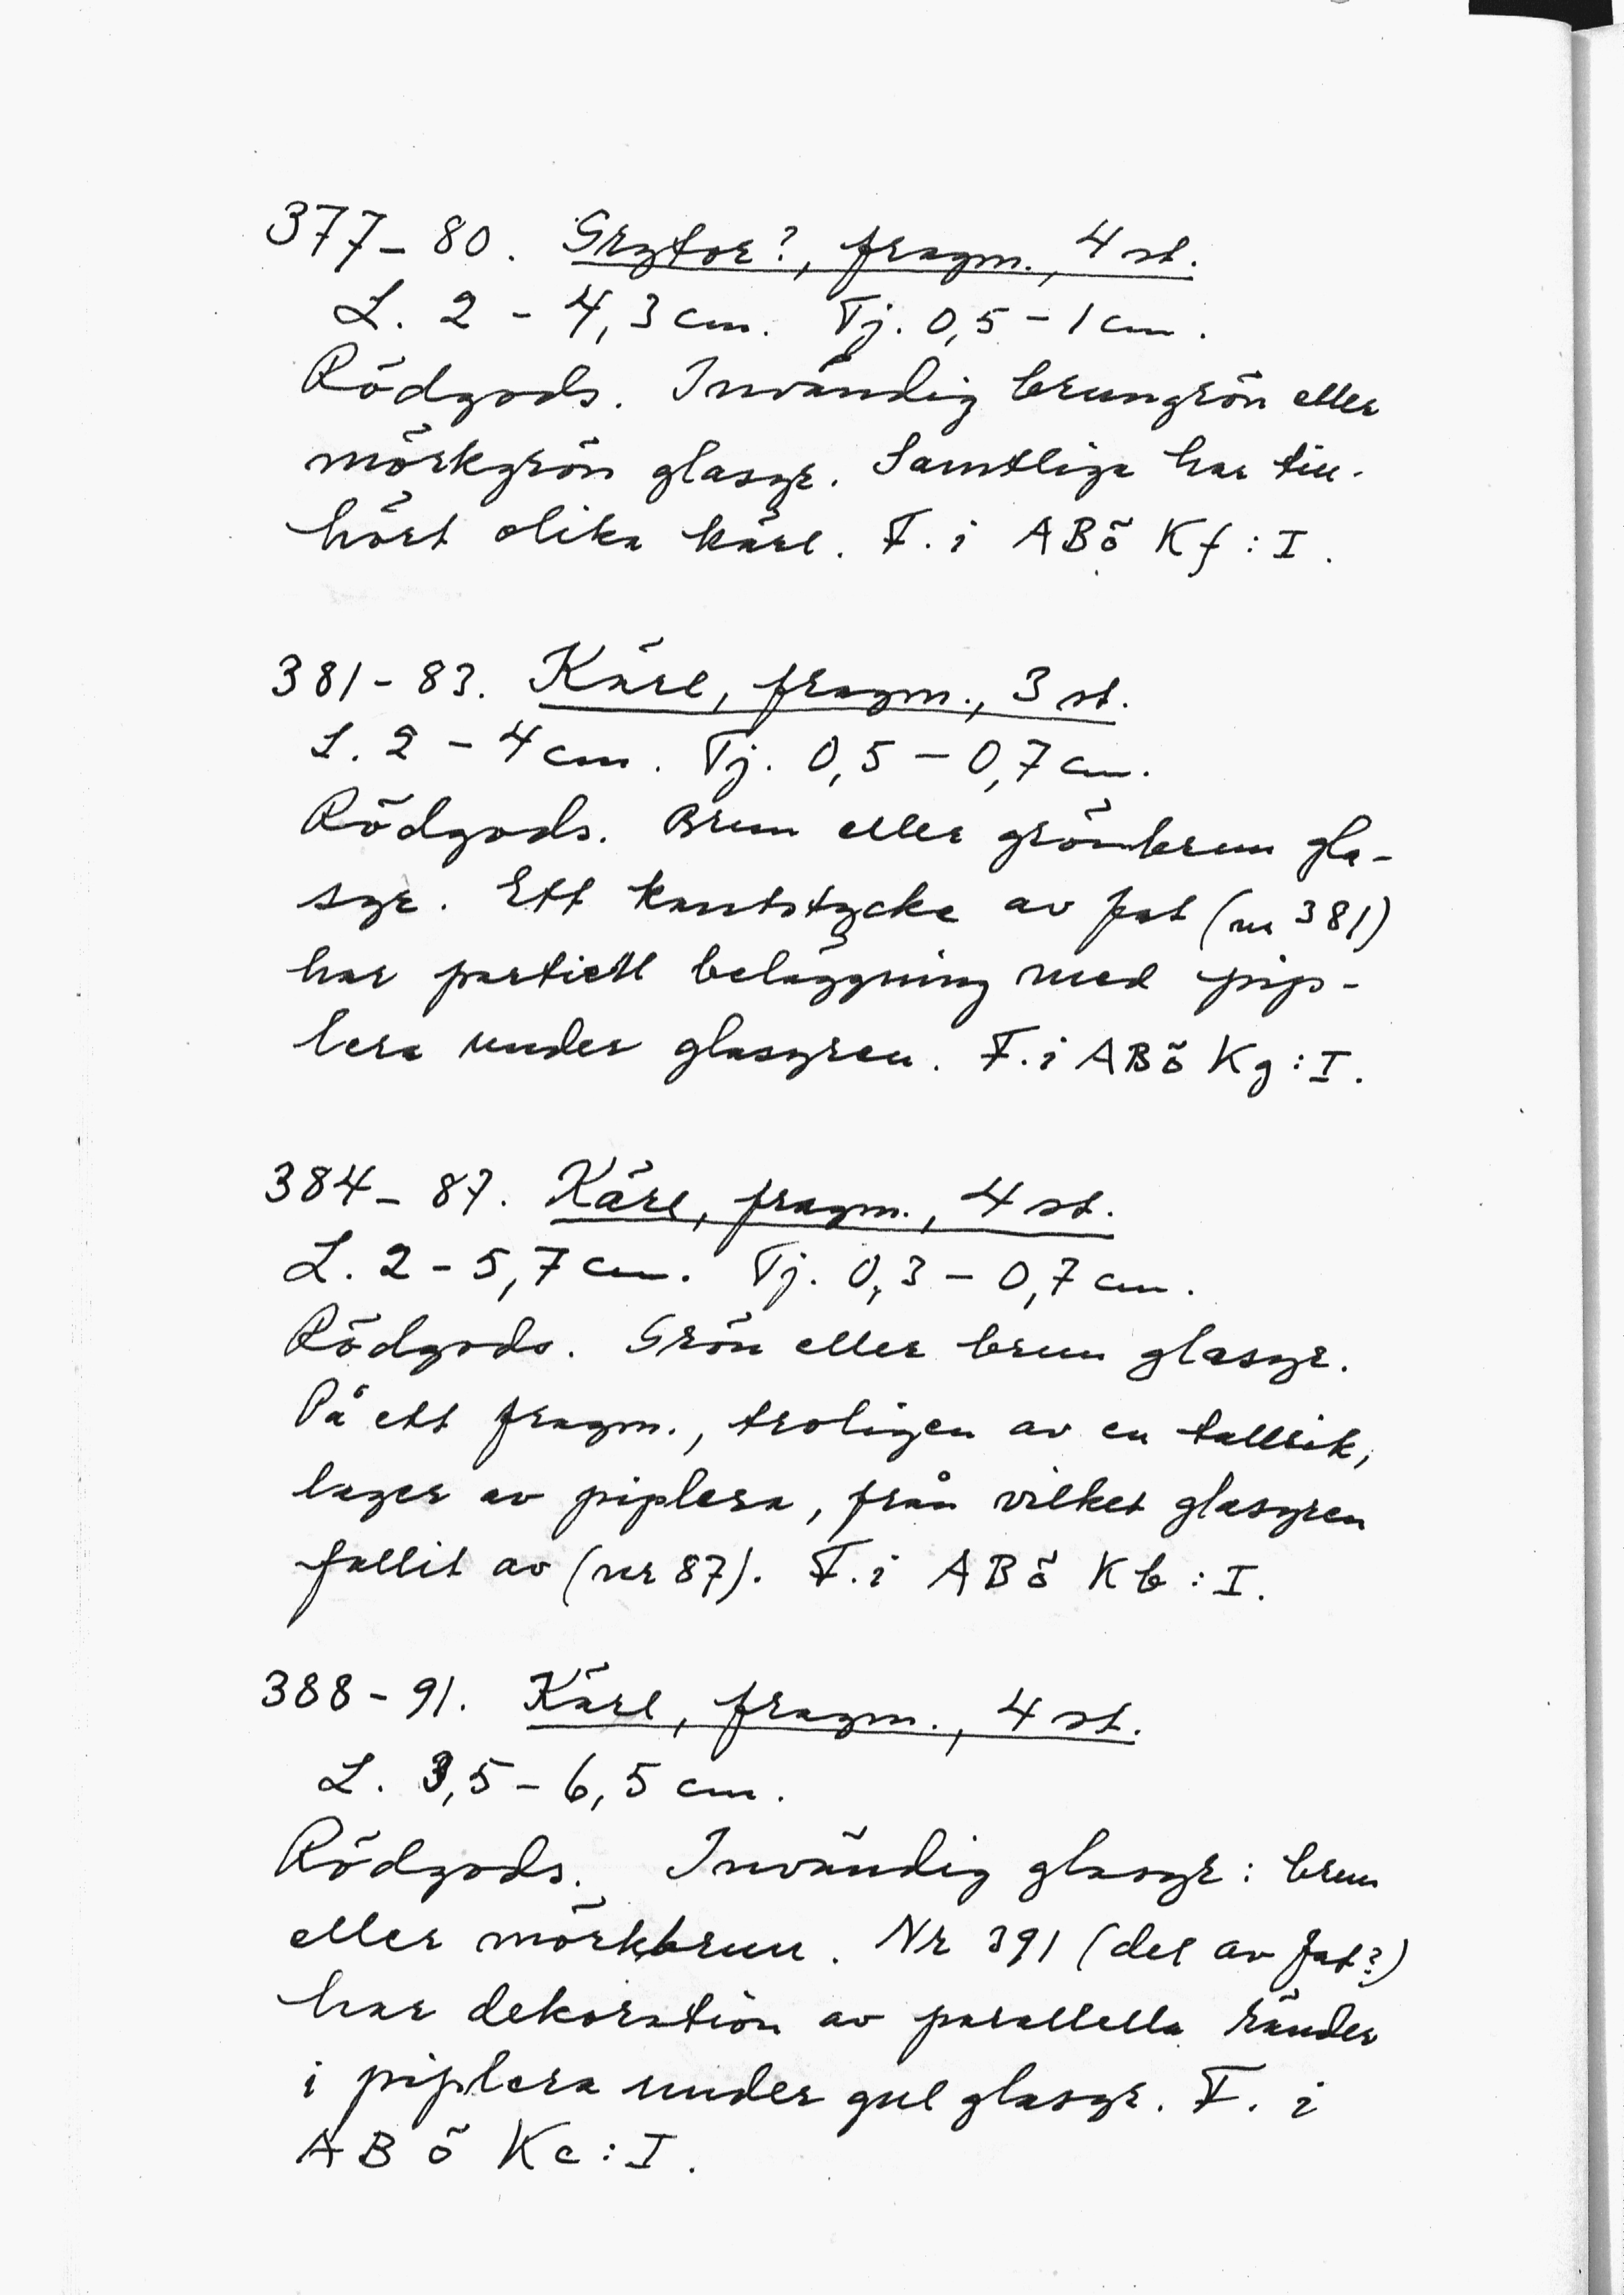 377-80. Grytor?, fragm., 4 st.
L. 2 - 4,3 cm. Tj. 0,5 - 1 cm.
Rödgods. Invändig brungrön eller
mörkgrön glasyr. Samtliga har till-
hört olika kärl. F. i ABö Kf: I.
381-83. Kärl, fragm., 3 st.
L. 2 - 4 cm. Tj. 0,5 - 0,7 cm.
Rödgods. Brun eller grönbrun gla-
syr. Ett kantstycke av fat (nr 381)
har partiell beläggning med pip-
lera under glasyren. F. i ABö Kg: I.
384-87. Kärl, fragm., 4 st.
L. 2 - 5,7 cm. Tj. 0,3 - 0,7 cm.
Rödgods. Grön eller brun glasyr.
På ett fragm., troligen av en tallrik,
lager av piplera, från vilket glasyren
fallit av (nr 87). F. i ABö Kb: I.
388-91. Kärl, fragm., 4 st.
L. 3,5 - 6,5 cm.
Rödgods. Invändig glasyr: brun
eller mörkbrun. Nr 391 (del av fat?)
har dekoration av parallella ränder
i piplera under gul glasyr. F. i
ABö Kc: I.